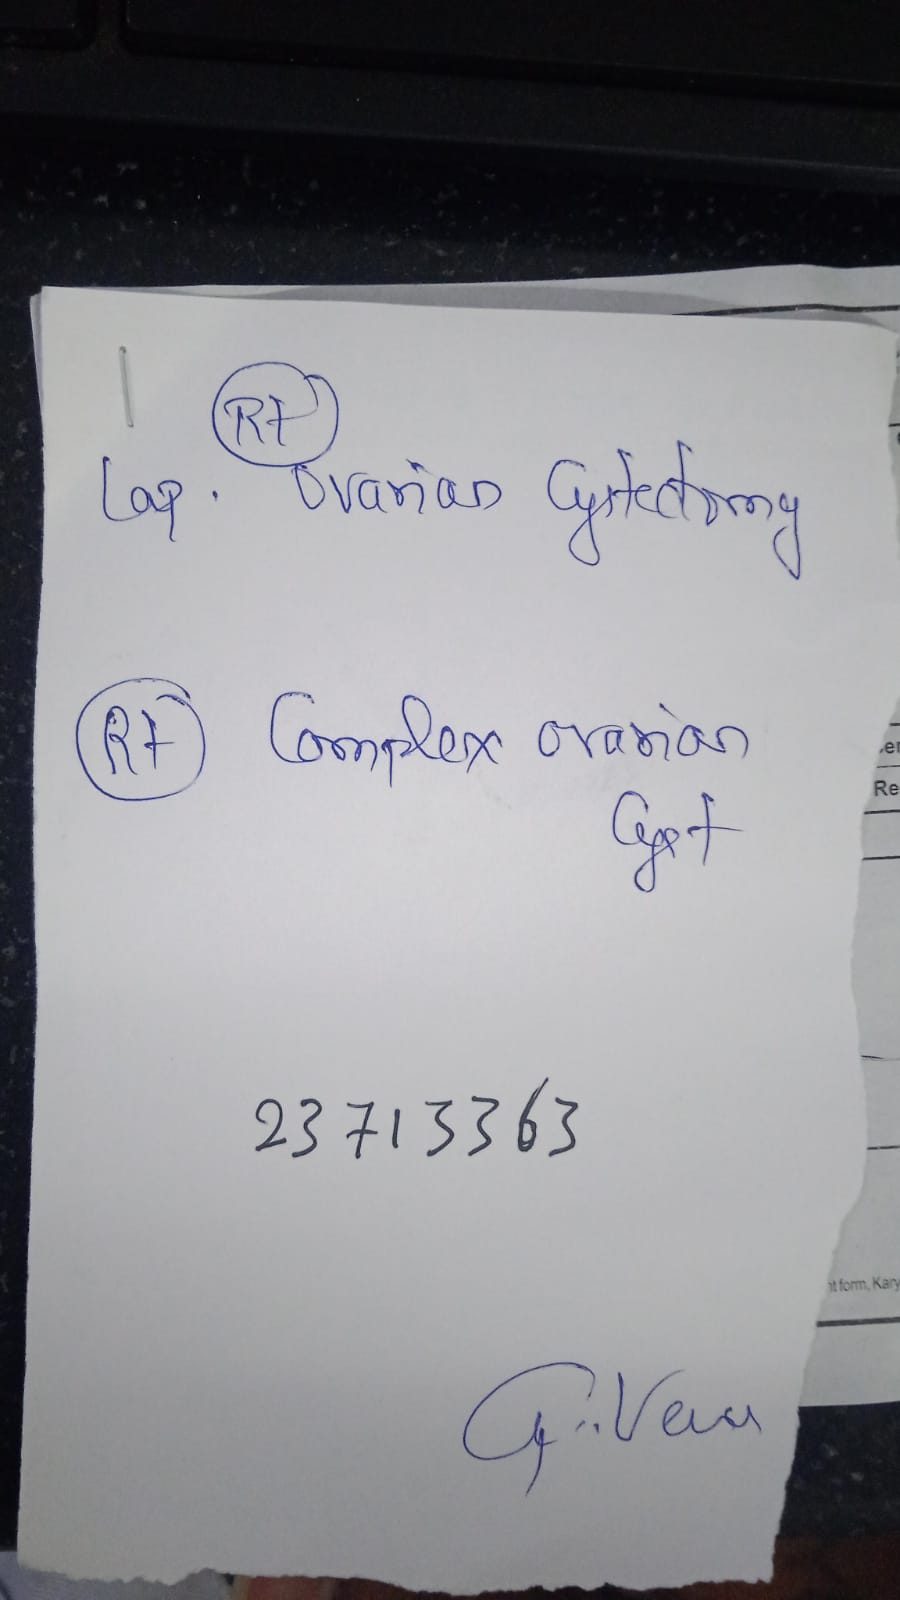 Rt
Lap. Ovarian Cystectomy
Rt Complex ovarian
Cyst
23713363
G. Veni
er
Re
nt form, Kary